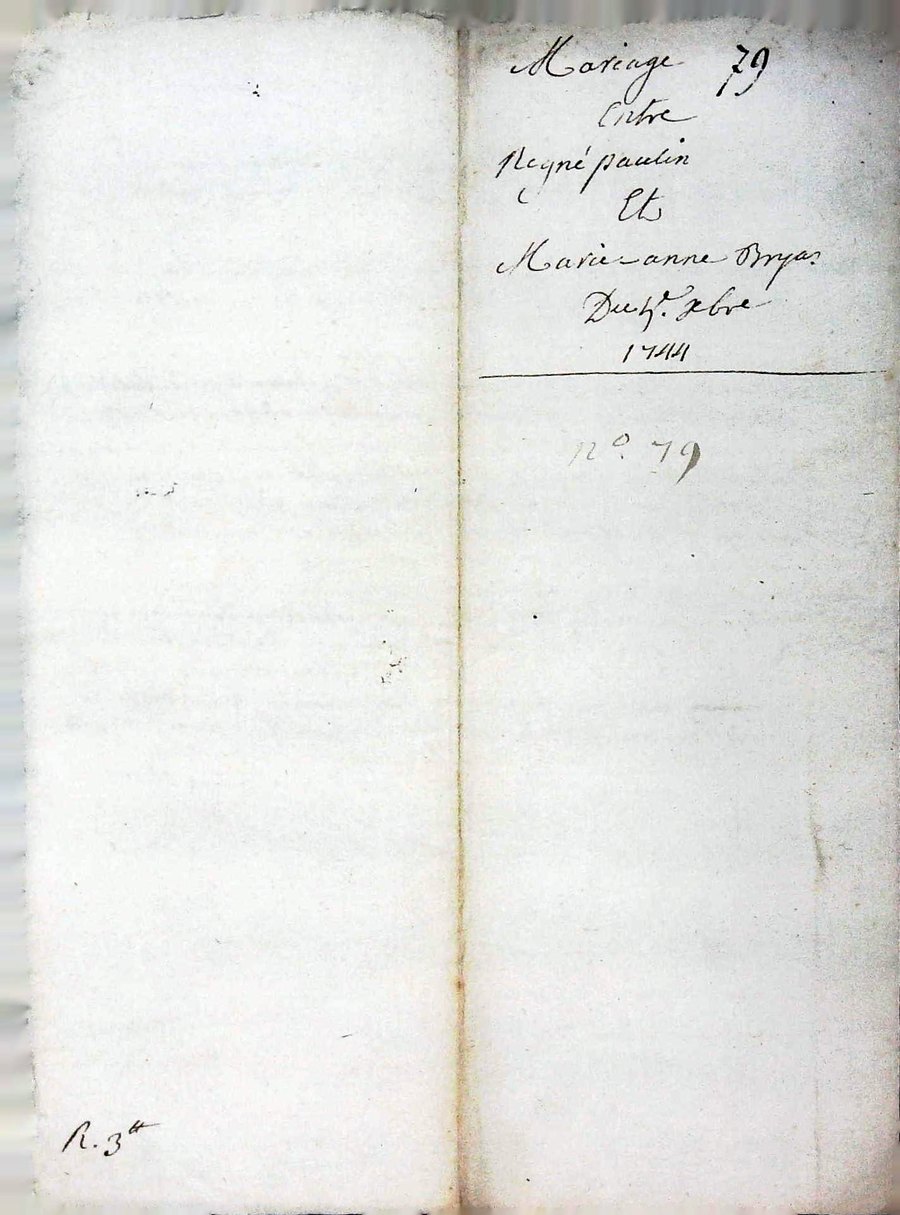 Mariage 79
Entre
Regné paulin
Et
Marie-anne Bryas
Du 4e. xbre
1744
no 79
R. 3tt